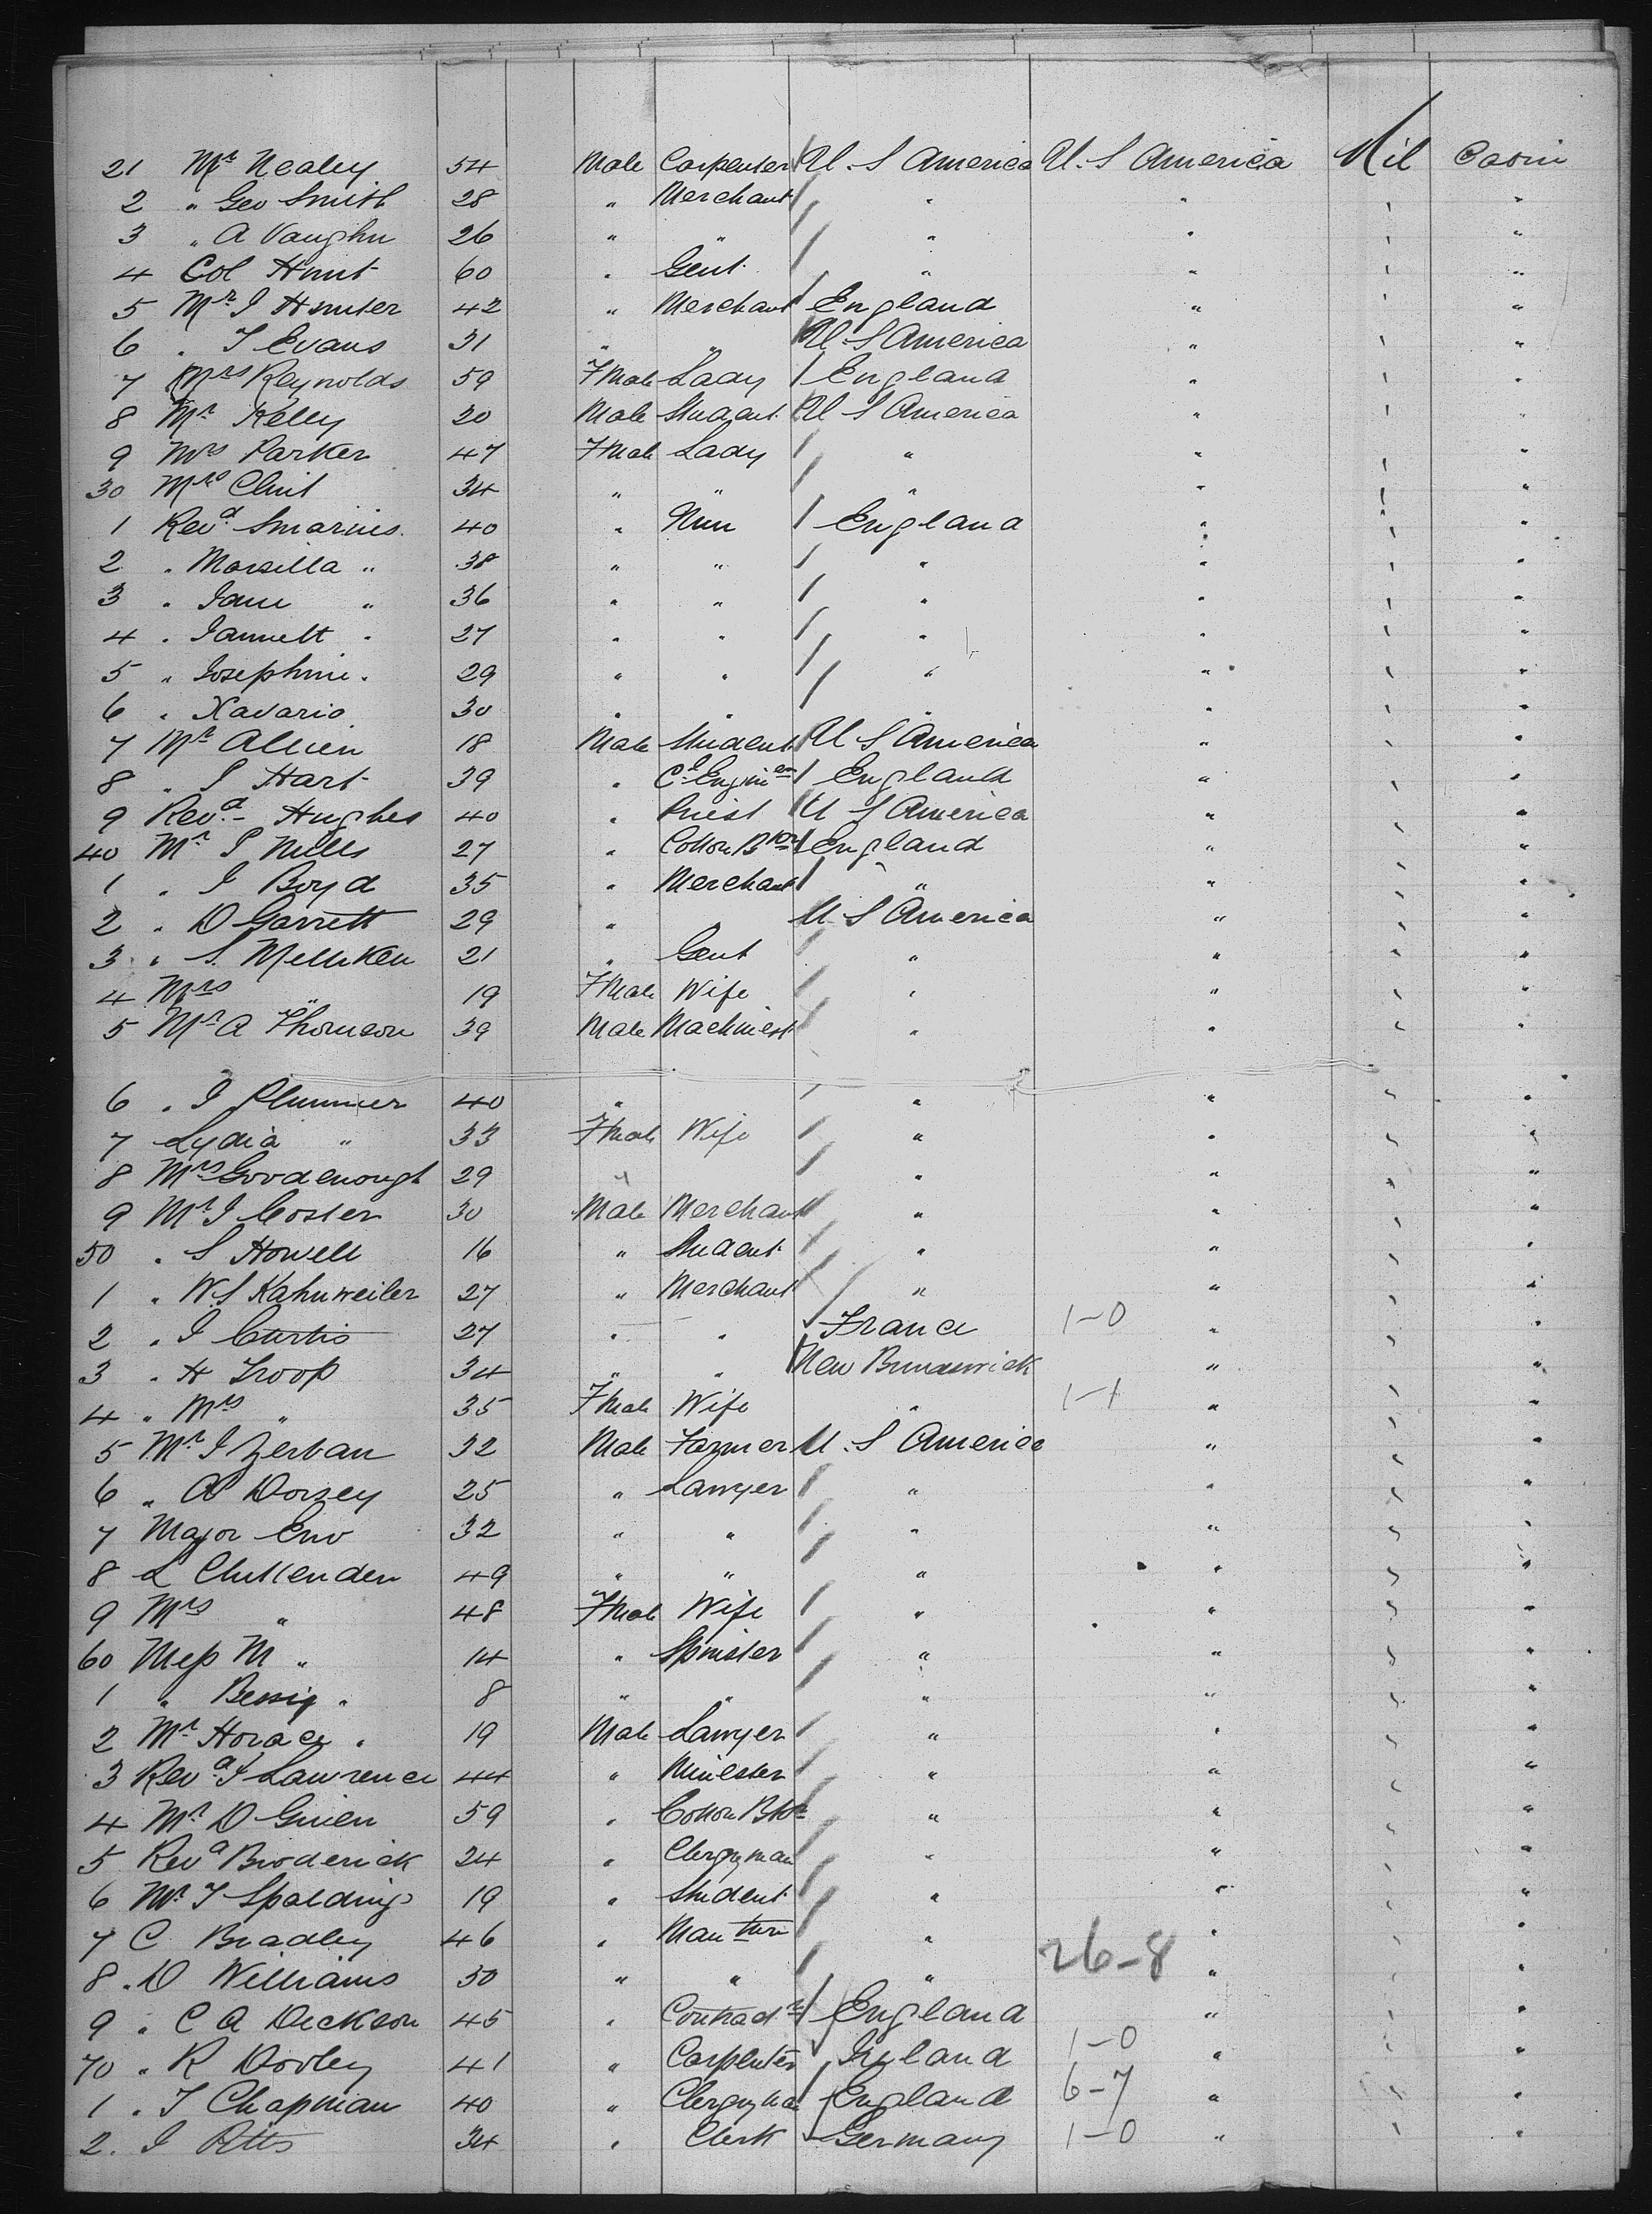 21 Mr Nealey 54 Male Carpenter U. S America U. S America Nil Cabin
2 " Geo Smith 28 " Merchant " " " "
3 " A Vaughn 26 " " " " " "
4 Col Hunt 60 " Gent " " " "
5 Mr J Hunter 42 " Merchant England " " "
6 " J Evans 31 " " U S America " " "
7 Mrs Reynolds 59 FMale Lady England " " "
8 Mr Kelly 20 Male Student U S America " " "
9 Mrs Parker 47 FMale Lady " " " "
30 Mrs Clint 34 " " " " " "
1 Revd 40 " Nun England " " "
2 " Marsilla " 38 " " " " " "
3 " Jane " 36 " " " " " "
4 " Jannett " 27 " " " " " "
5 " Josephine " 29 " " " " " "
6 " Xavario 30 " " " " " "
7 Mr 18 Male Student U S America " " "
8 " J Hart 39 " Cl Engineer England " " "
9 Revd Hughes 40 " Priest U S America " " "
40 Mr J Mills 27 " Cotton Bkr England " " "
1 " J Boyd 35 " Merchant " " " "
2 " D Garrett 29 " U S America " " "
3 " S. Melliken 21 " Gent " " " "
4 Mrs " 19 FMale Wife " " " "
5 Mr A Thomson 39 Male Machinest " " " "
6 " J Plummer 40 " " " " "
7 Lydia " 33 FMale Wife " " " "
8 Mrs Goodenough 29 " " " " "
9 Mr J Coster 30 Male Merchant " " " "
50 " S Howell 16 " Student " " " "
1 " W. S Kahnweiler 27 " Merchant " " " "
2 " J Curtis 27 " " France 1-0 " " "
3 " H Troop 34 " " New Brunswick " " "
4 " Mrs " 35 FMale Wife " 1-1 " " "
5 Mr J Zerban 32 Male Farmer U. S America " " "
6 " A Dorsey 25 " Lawyer " " " "
7 Major 32 " " " " " "
8 L Chittenden 49 " " " " " "
9 Mrs " 48 FMale Wife " " " "
60 Miss M " 14 " Spinster " " " "
1 " Bessie " 8 " " " " " "
2 Mr Horace " 19 Male Lawyer " " " "
3 Revd J Lawrence 44 " Minester " " " "
4 Mr D 59 " Cotton Bkr " " " "
5 Revd Broderick 24 " Clergyman " " " "
6 Mr J Spalding 19 " Student " " " "
7 C Bradley 46 " Manture " " " "
8 " D Williams 30 " " " 26-8 " " "
9 " C A Dickson 45 " Contractr England " " "
70 " R Dooley 41 " Carpenter Ireland 1-0 " " "
1 " J Chapman 40 " Clergyman England 6-7 " " "
2. J Otto 34 " Clerk Germany 1-0 " " "